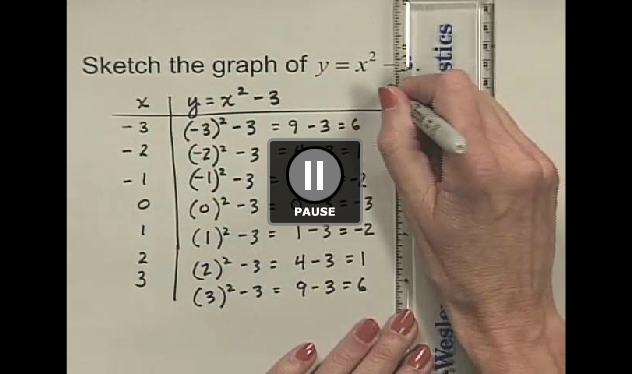 Sketch the graph of y = x² –
x | y = x² - 3
-3 (-3)² - 3 = 9 - 3 = 6
-2 (-2)² - 3 = 1
-1 (-1)² - 3 -2
0 (0)² - 3 = -3
1 (1)² - 3 = 1 - 3 = -2
2 (2)² - 3 = 4 - 3 = 1
3 (3)² - 3 = 9 - 3 = 6
PAUSE
stics
-Wesle